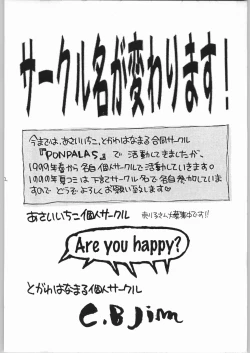 サークル名が変わります！
今までは、あさいいちこ、とがわはなまる合同サークル
『PONPALAS』で活動してきましたが、
1999年春から各自個人サークルで活動していきます♡
1999年夏コミは下記サークル名で各自参加していま
すので どうぞよろしくお願い致します♡
あさいいちこ個人サークル
売り子さん大募集中です!!
Are you happy?
とがわはなまる個人サークル
C.B Jim